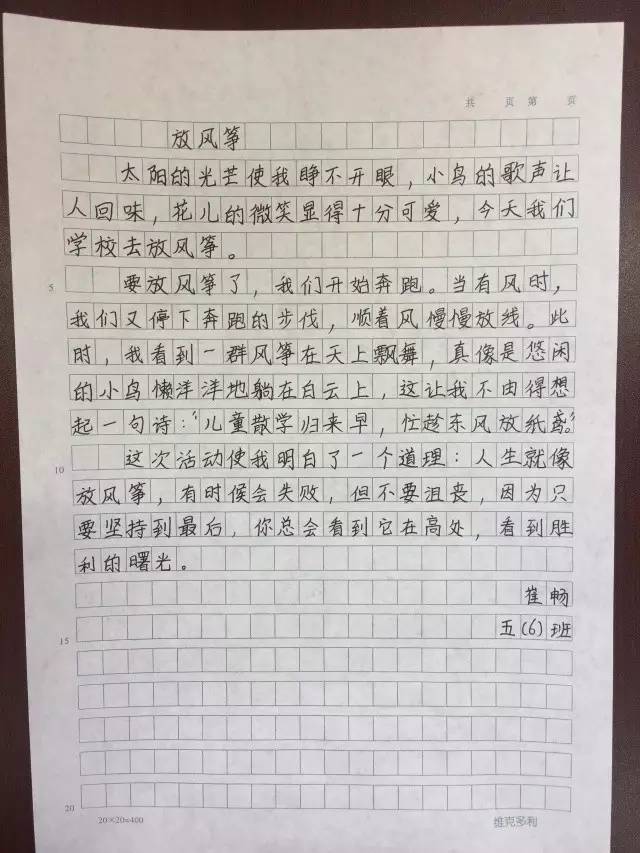 共 页 第 页
放风筝
太阳的光芒使我睁不开眼，小鸟的歌声让
人回味，花儿的微笑显得十分可爱，今天我们
学校去放风筝。
5 要放风筝了，我们开始奔跑。当有风时，
我们又停下奔跑的步伐，顺着风慢慢放线。此
时，我看到一群风筝在天上飘舞，真像是悠闲
的小鸟懒洋洋地躺在白云上，这让我不由得想
起一句诗：“儿童散学归来早，忙趁东风放纸鸢。”
10 这次活动使我明白了一个道理：人生就像
放风筝，有时候会失败，但不要沮丧，因为只
要坚持到最后，你总会看到它在高处，看到胜
利的曙光。
崔畅
15 五(6)班
20
20×20=400 维克多利